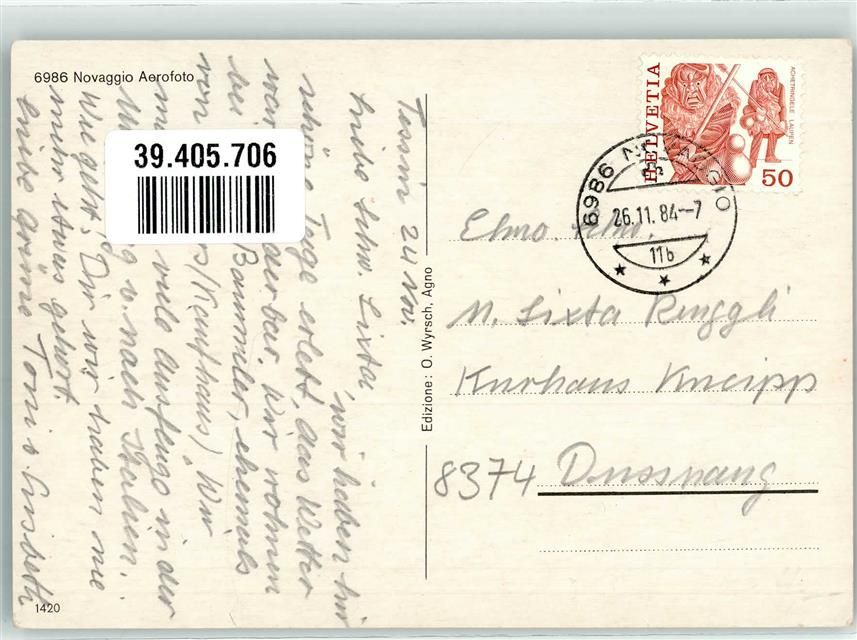 6986 Novaggio Aerofoto
39.405.706
Tessin 24 Nov.
Liebe Schw. Sixta
wir haben hir
schöne Tage erlebt, das Wetter
war wunderbar. Wir wohnen
bei Baumler, ehemals
von /Kaufhaus/ Wir
machen viele Ausfluge in der
Umgebung u. nach Italien.
Wie geht's Dir wir haben nie
mehr etwas gehört
Liebe Grüsse Toni u Lisbeth
1420
Edizione: O. Wyrsch, Agno
HELVETIA
ACHETRINGELE LAUPEN
50
6986 NOVAGGIO
26.11.84–7
11b
Ehrw. Schw.
M. Sixta Ringgli
Kurhaus Kneipp
8374 Dussnang